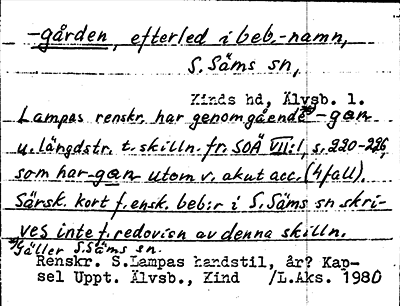 -gården, efterled i beb.-namn,
S. Säms sn,
Kinds hd, Älvsb. l.
Lampas renskr. har genomgående* -gan
u. längdstr. t. skilln. fr. SOÄ VII:1, s. 220-226,
som har -gan utom v. akut acc. (4 fall).
Särsk. kort f. ensk. beb:r i S. Säms sn skri-
ves inte f. redovisn av denna skilln.
*Gäller S. Säms sn.
Renskr. S.Lampas handstil, år? Kap-
sel Uppt. Älvsb., Kind /L.Aks. 1980